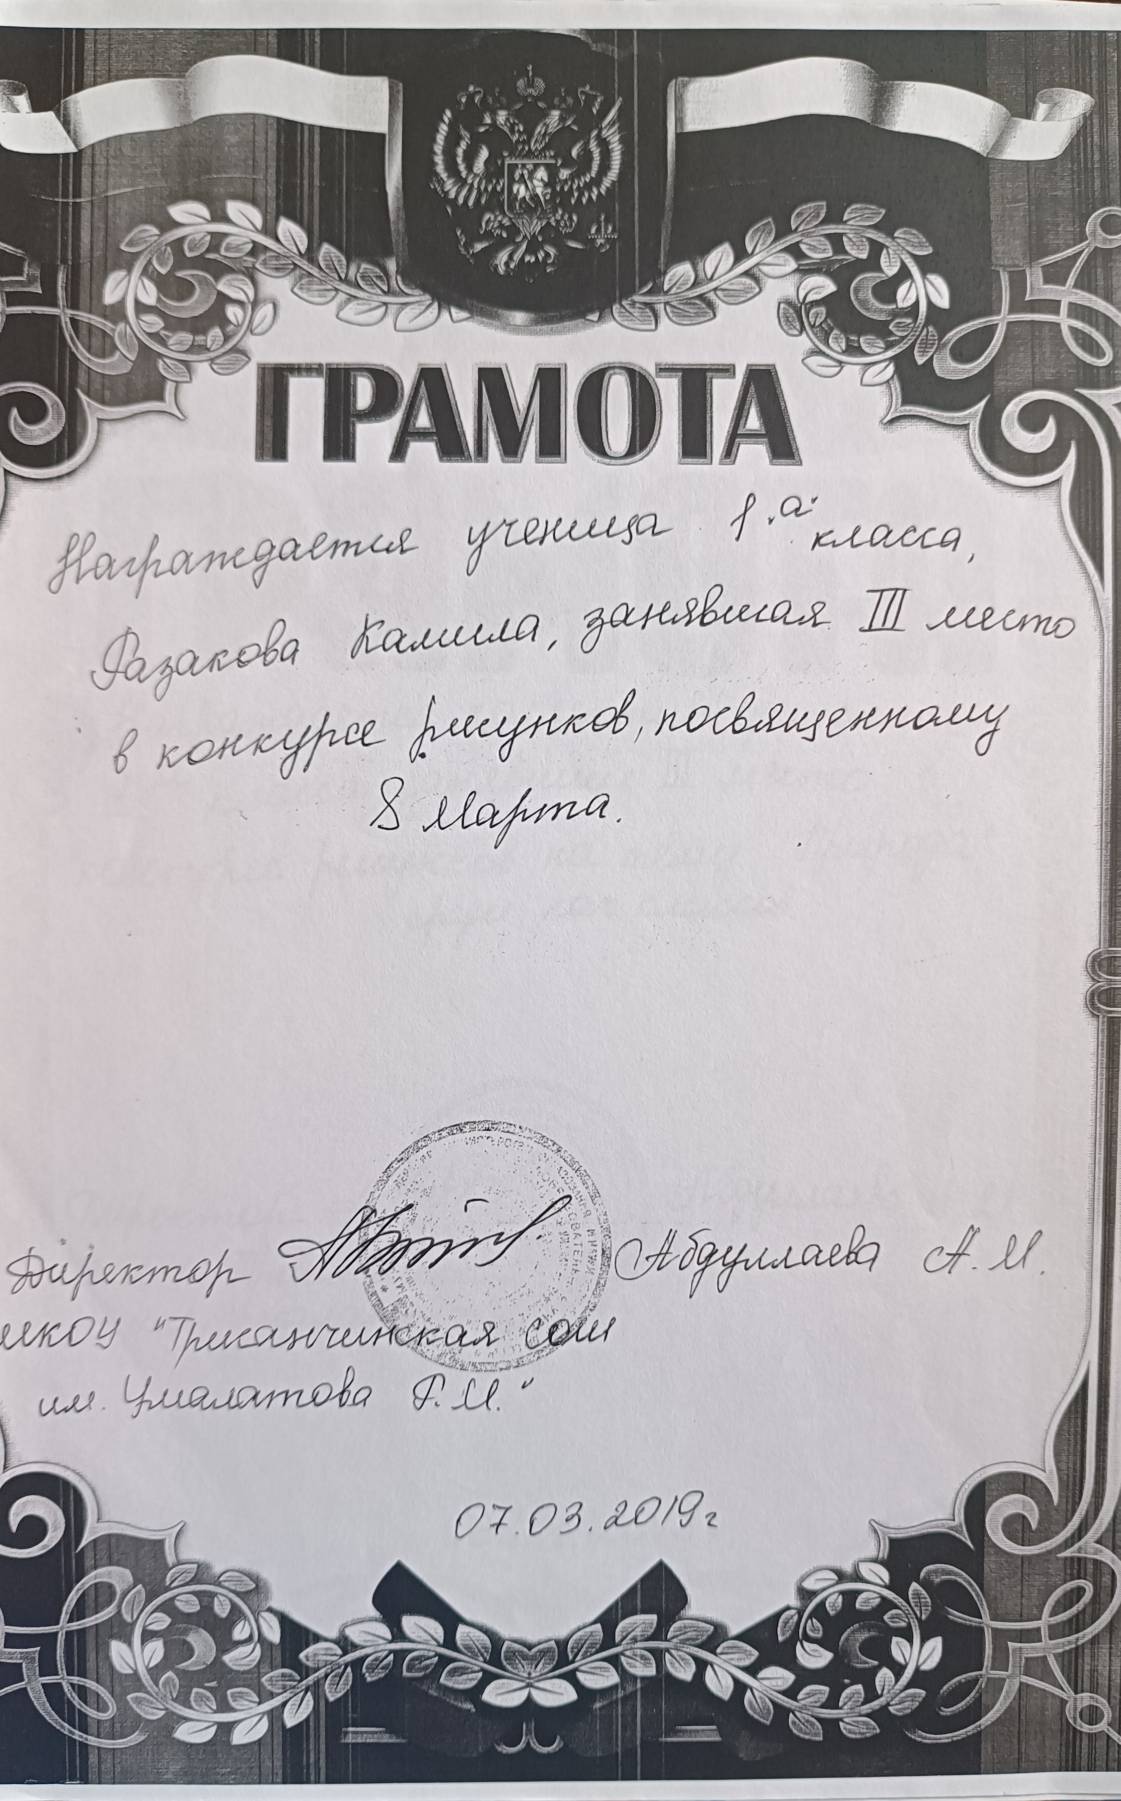 ГРАМОТА
Награждается ученица 1 "а" класса,
Разакова Камила, занявшая III место
в конкурсе рисунков, посвященному
8 Марта.
Директор Абдуллаева А.М.
МКОУ "Трисанчинская СОШ
им. Умалатова Г.М."
07.03.2019г